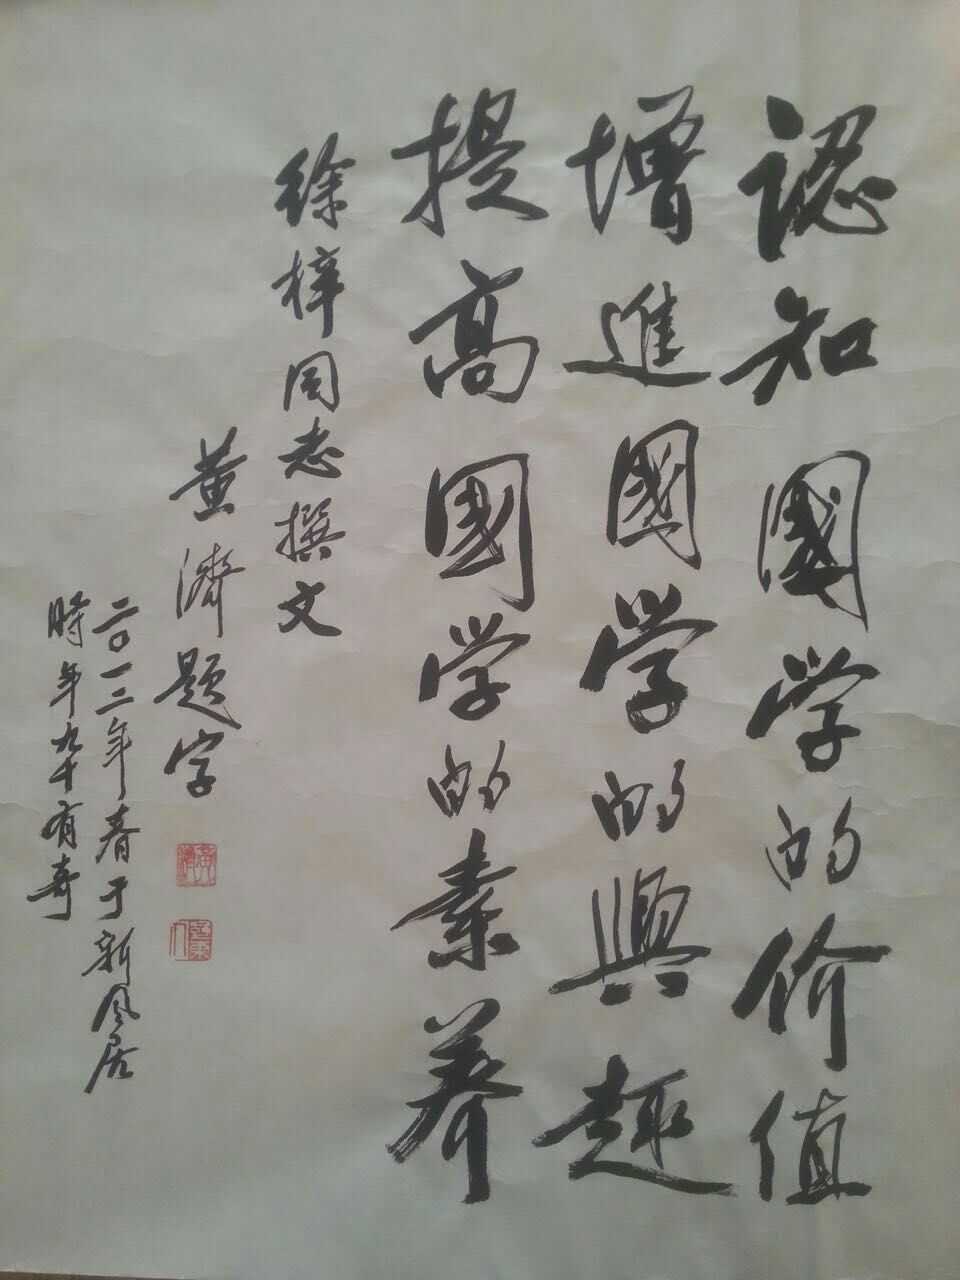 認知國学的价值
增進國学的興趣
提高國学的素养
徐梓同志撰文
黄濟题字
二〇一三年春于新风居
時年九十有奇